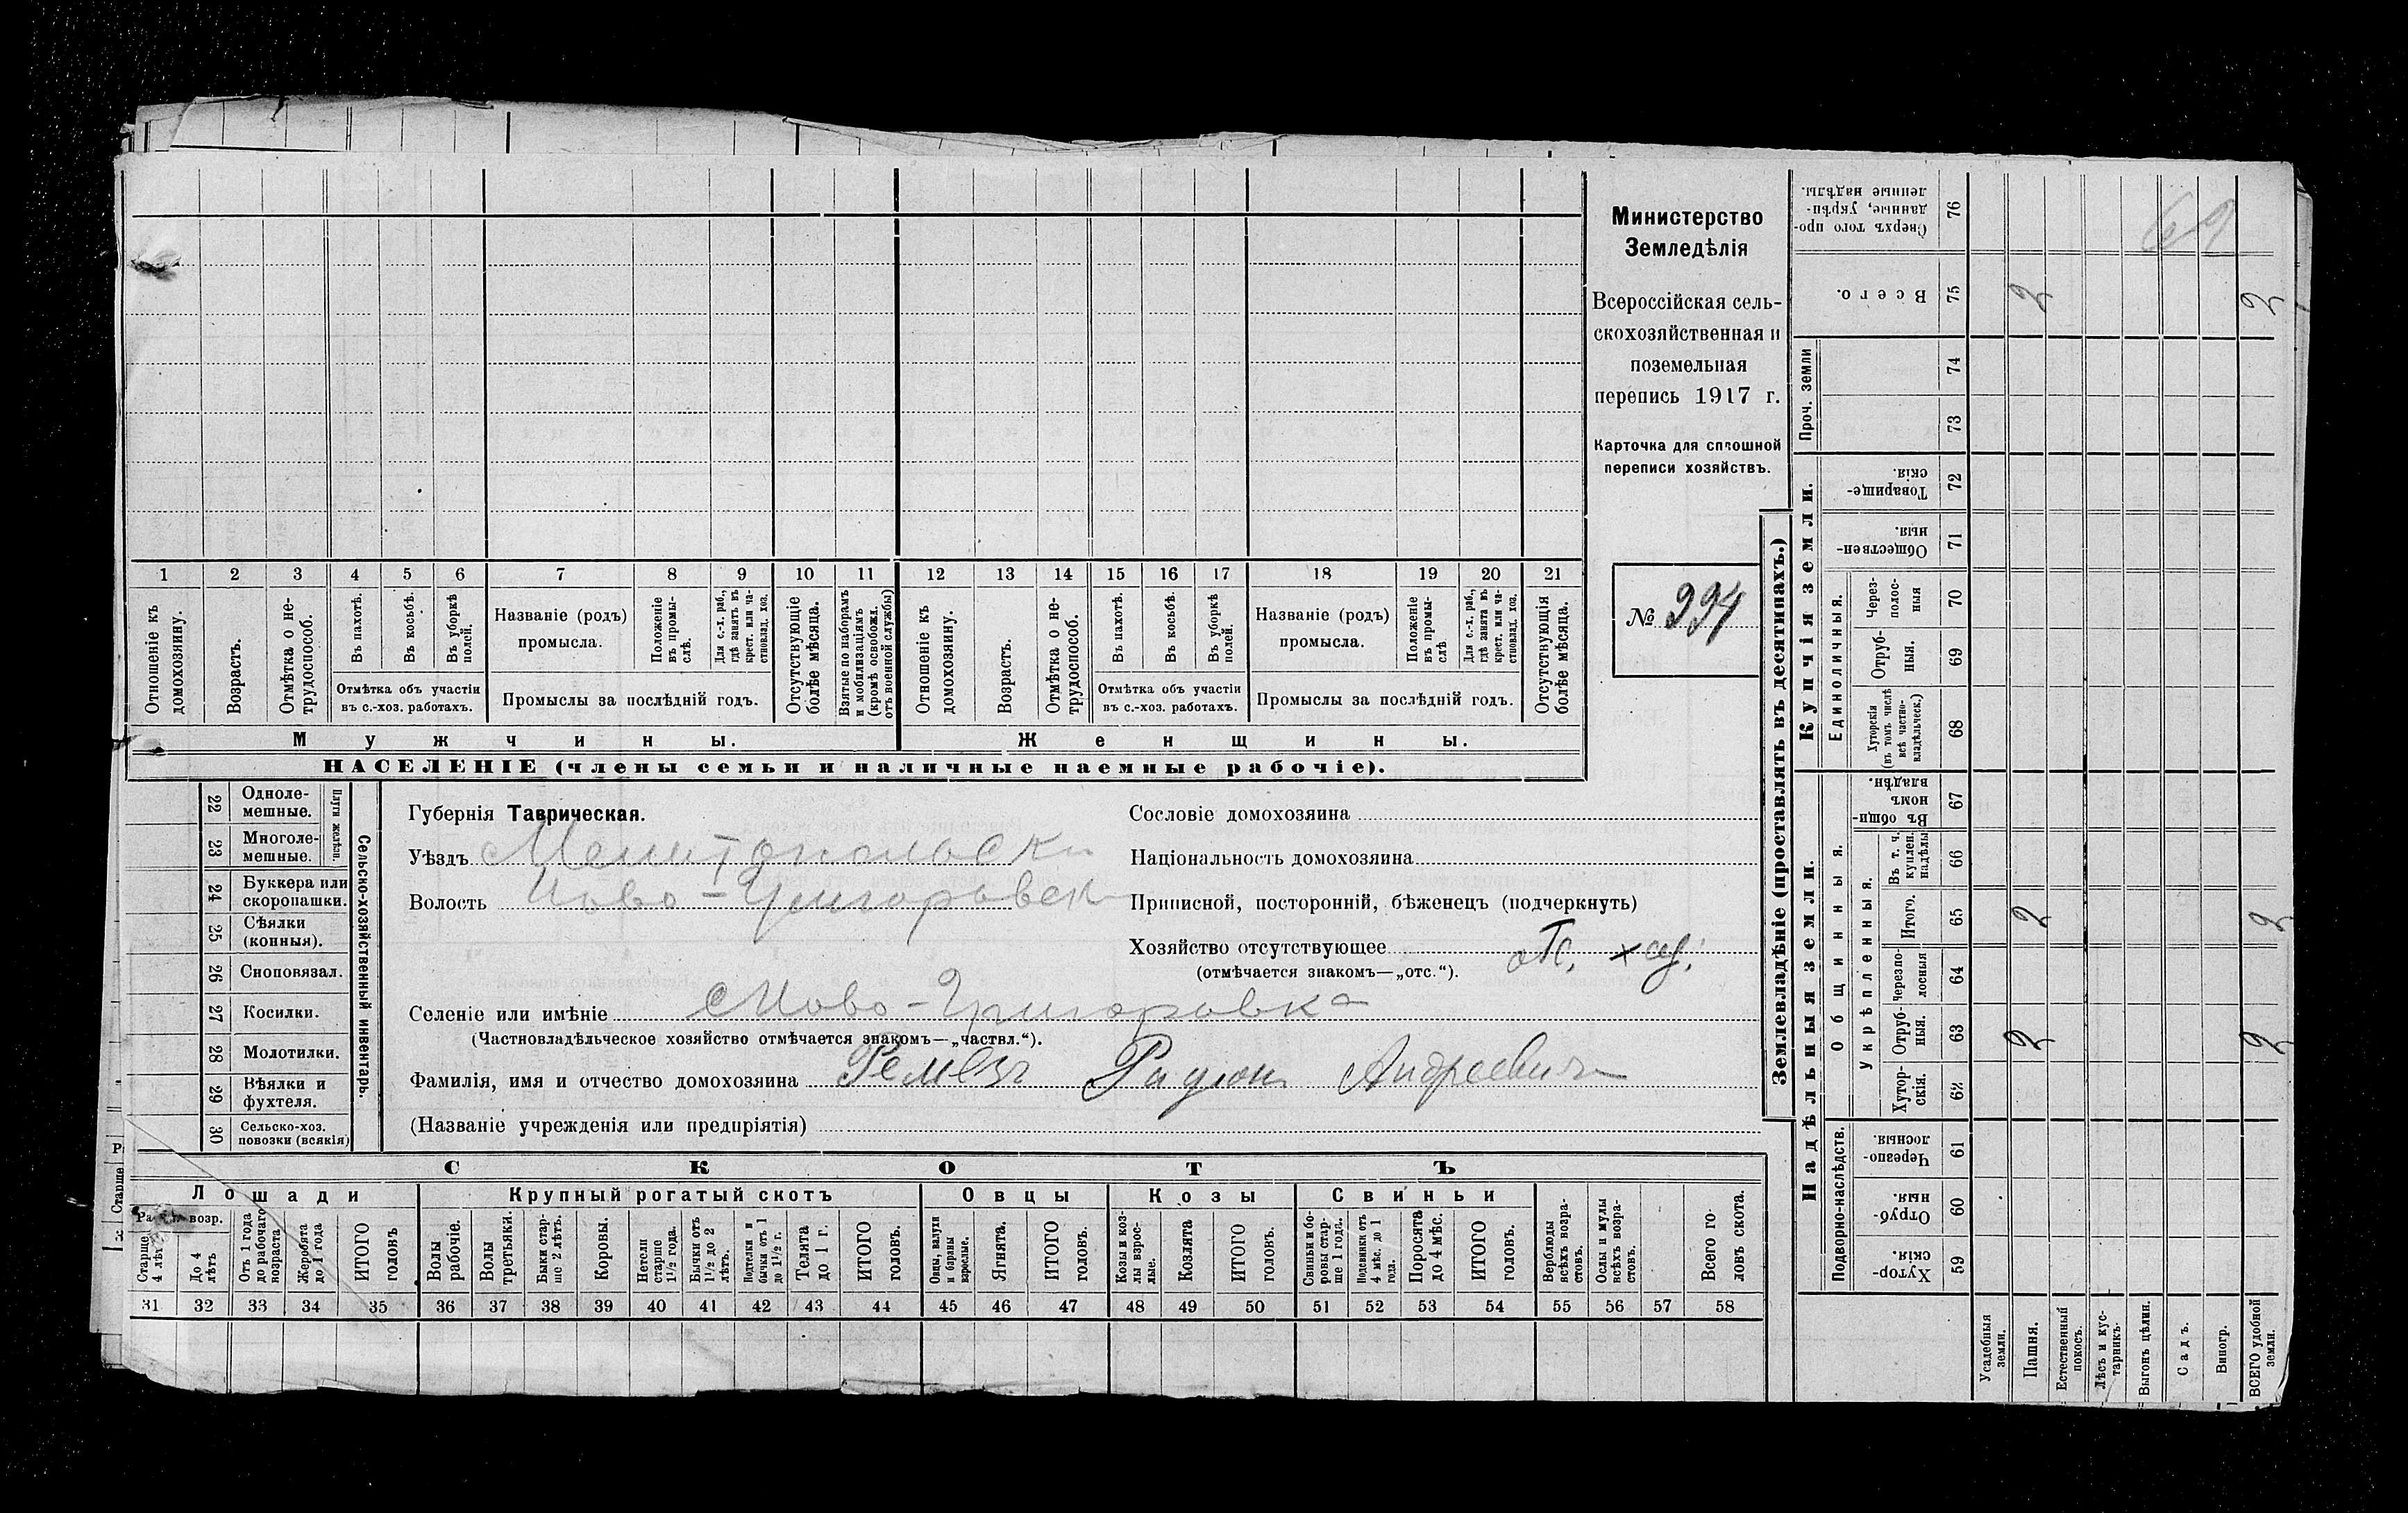 Министерство
Земледѣлія
Всероссійская сель-
скохозяйственная и
поземельная
перепись 1917 г.
Карточка для сплошной
переписи хозяйствъ.
№ 994
1 2 3 4 5 6 7 8 9 10 11 12 13 14 15 16 17 18 19 20 21
Отношеніе къ домохозяину.
Возрастъ.
Отмѣтка о не-трудоспособ.
Въ пахотѣ.
Въ косьбѣ.
Въ уборкѣ полей.
Отмѣтка объ участіи
въ с.-хоз. работахъ.
Названіе (родъ)
промысла.
Положеніе въ промы-слѣ.
Для с.-х. раб., гдѣ занятъ въ крест. или ча-стновлад. хоз.
Промыслы за послѣдній годъ.
Отсутствующіе болѣе мѣсяца.
Взятые по наборамъ и мобилизаціямъ (кромѣ освобожд. отъ военной службы)
Отношеніе къ домохозяину.
Возрастъ.
Отмѣтка о не-трудоспособ.
Въ пахотѣ.
Въ косьбѣ.
Въ уборкѣ полей.
Отмѣтка объ участіи
въ с.-хоз. работахъ.
Названіе (родъ)
промысла.
Положеніе въ промы-слѣ
Для с.-х. раб., гдѣ занята въ крест. или ча-стновлад. хоз.
Промыслы за послѣдній годъ.
Отсутствующія болѣе мѣсяца.
Мужчины.
Женщины.
НАСЕЛЕНІЕ (члены семьи и наличные наемные рабочіе).
22 Одноле-мешные.
23 Многоле-мешные.
Плуги желѣзн.
24 Буккера или скоропашки.
25 Сѣялки (конныя).
26 Сноповязал.
27 Косилки.
28 Молотилки.
29 Вѣялки и фухтеля.
30 Сельско-хоз. повозки (всякія)
Сельско-хозяйственный инвентарь.
Губернія Таврическая.
Уѣздъ Мелитопольски
Волость Ново-Григоровск
Селеніе или имѣніе Ново-Григоровка
(Частновладѣльческое хозяйство отмѣчается знакомъ—„частвл.“).
Фамилія, имя и отчество домохозяина Ремезъ Радіонъ Андреевичъ
(Названіе учрежденія или предпріятія)
Сословіе домохозяина
Національность домохозяина
Приписной, посторонній, бѣженецъ (подчеркнуть)
Хозяйство отсутствующее
(отмѣчается знакомъ—„отс.“).
СКОТЪ
Лошади
Крупный рогатый скотъ
Овцы
Козы
Свиньи
возр.
Старше 4 лѣт
До 4 лѣтъ
Отъ 1 года до рабочаго возраста
Жеребята до 1 года
ИТОГО головъ
Волы рабочіе.
Волы третьяки.
Быки стар-ше 2 лѣтъ.
Коровы.
Нетели старше 1½ года.
Бычки отъ 1½ до 2 лѣтъ.
Подтелки и бычки отъ 1 до 1½ г.
Телята до 1 г.
ИТОГО головъ.
Овцы, валухи и бараны взрослые.
Ягнята.
ИТОГО головъ.
Козы и коз-лы взрос-лые.
Козлята
ИТОГО головъ.
Свиньи и бо-ровы стар-ше 1 года.
Подсвинки отъ 4 мѣс. до 1 года.
Поросята до 4 мѣс.
ИТОГО головъ.
Верблюды всѣхъ возра-стовъ.
Ослы и мулы всѣхъ возра-стовъ.
Всего го-ловъ скота.
31 32 33 34 35 36 37 38 39 40 41 42 43 44 45 46 47 48 49 50 51 52 53 54 55 56 57 58
Землевладѣніе (проставлять въ десятинахъ.)
69
Сверхъ того про-данные, укрѣп-ленные надѣлы. 76
Всего. 75 2 2
Проч. земли 74
73
Купчія земли.
Товарище-скія. 72
Обществен-ныя. 71
Единоличныя.
Через-полос-ныя 70
Отруб-ныя. 69
Хуторскія (въ томъ числѣ всѣ частно-владѣльческ.) 68
Надѣльныя земли.
Общинныя.
Въ общи-номъ владѣн. 67
Укрѣпленныя.
Въ т. ч. куплен. надѣлы 66
Итого. 65 2 2
Черезпо-лосныя 64
Отруб-ныя. 63 2 2
Хутор-скія. 62
Подворно-наслѣдств.
Черезпо-лосныя. 61
Отруб-ныя. 60
Хутор-скія. 59
Усадебныя земли.
Пашня.
Естественный покосъ.
Лѣсъ и кус-тарникъ.
Выгонъ цѣлин.
Садъ.
Виногр.
ВСЕГО удобной земли.